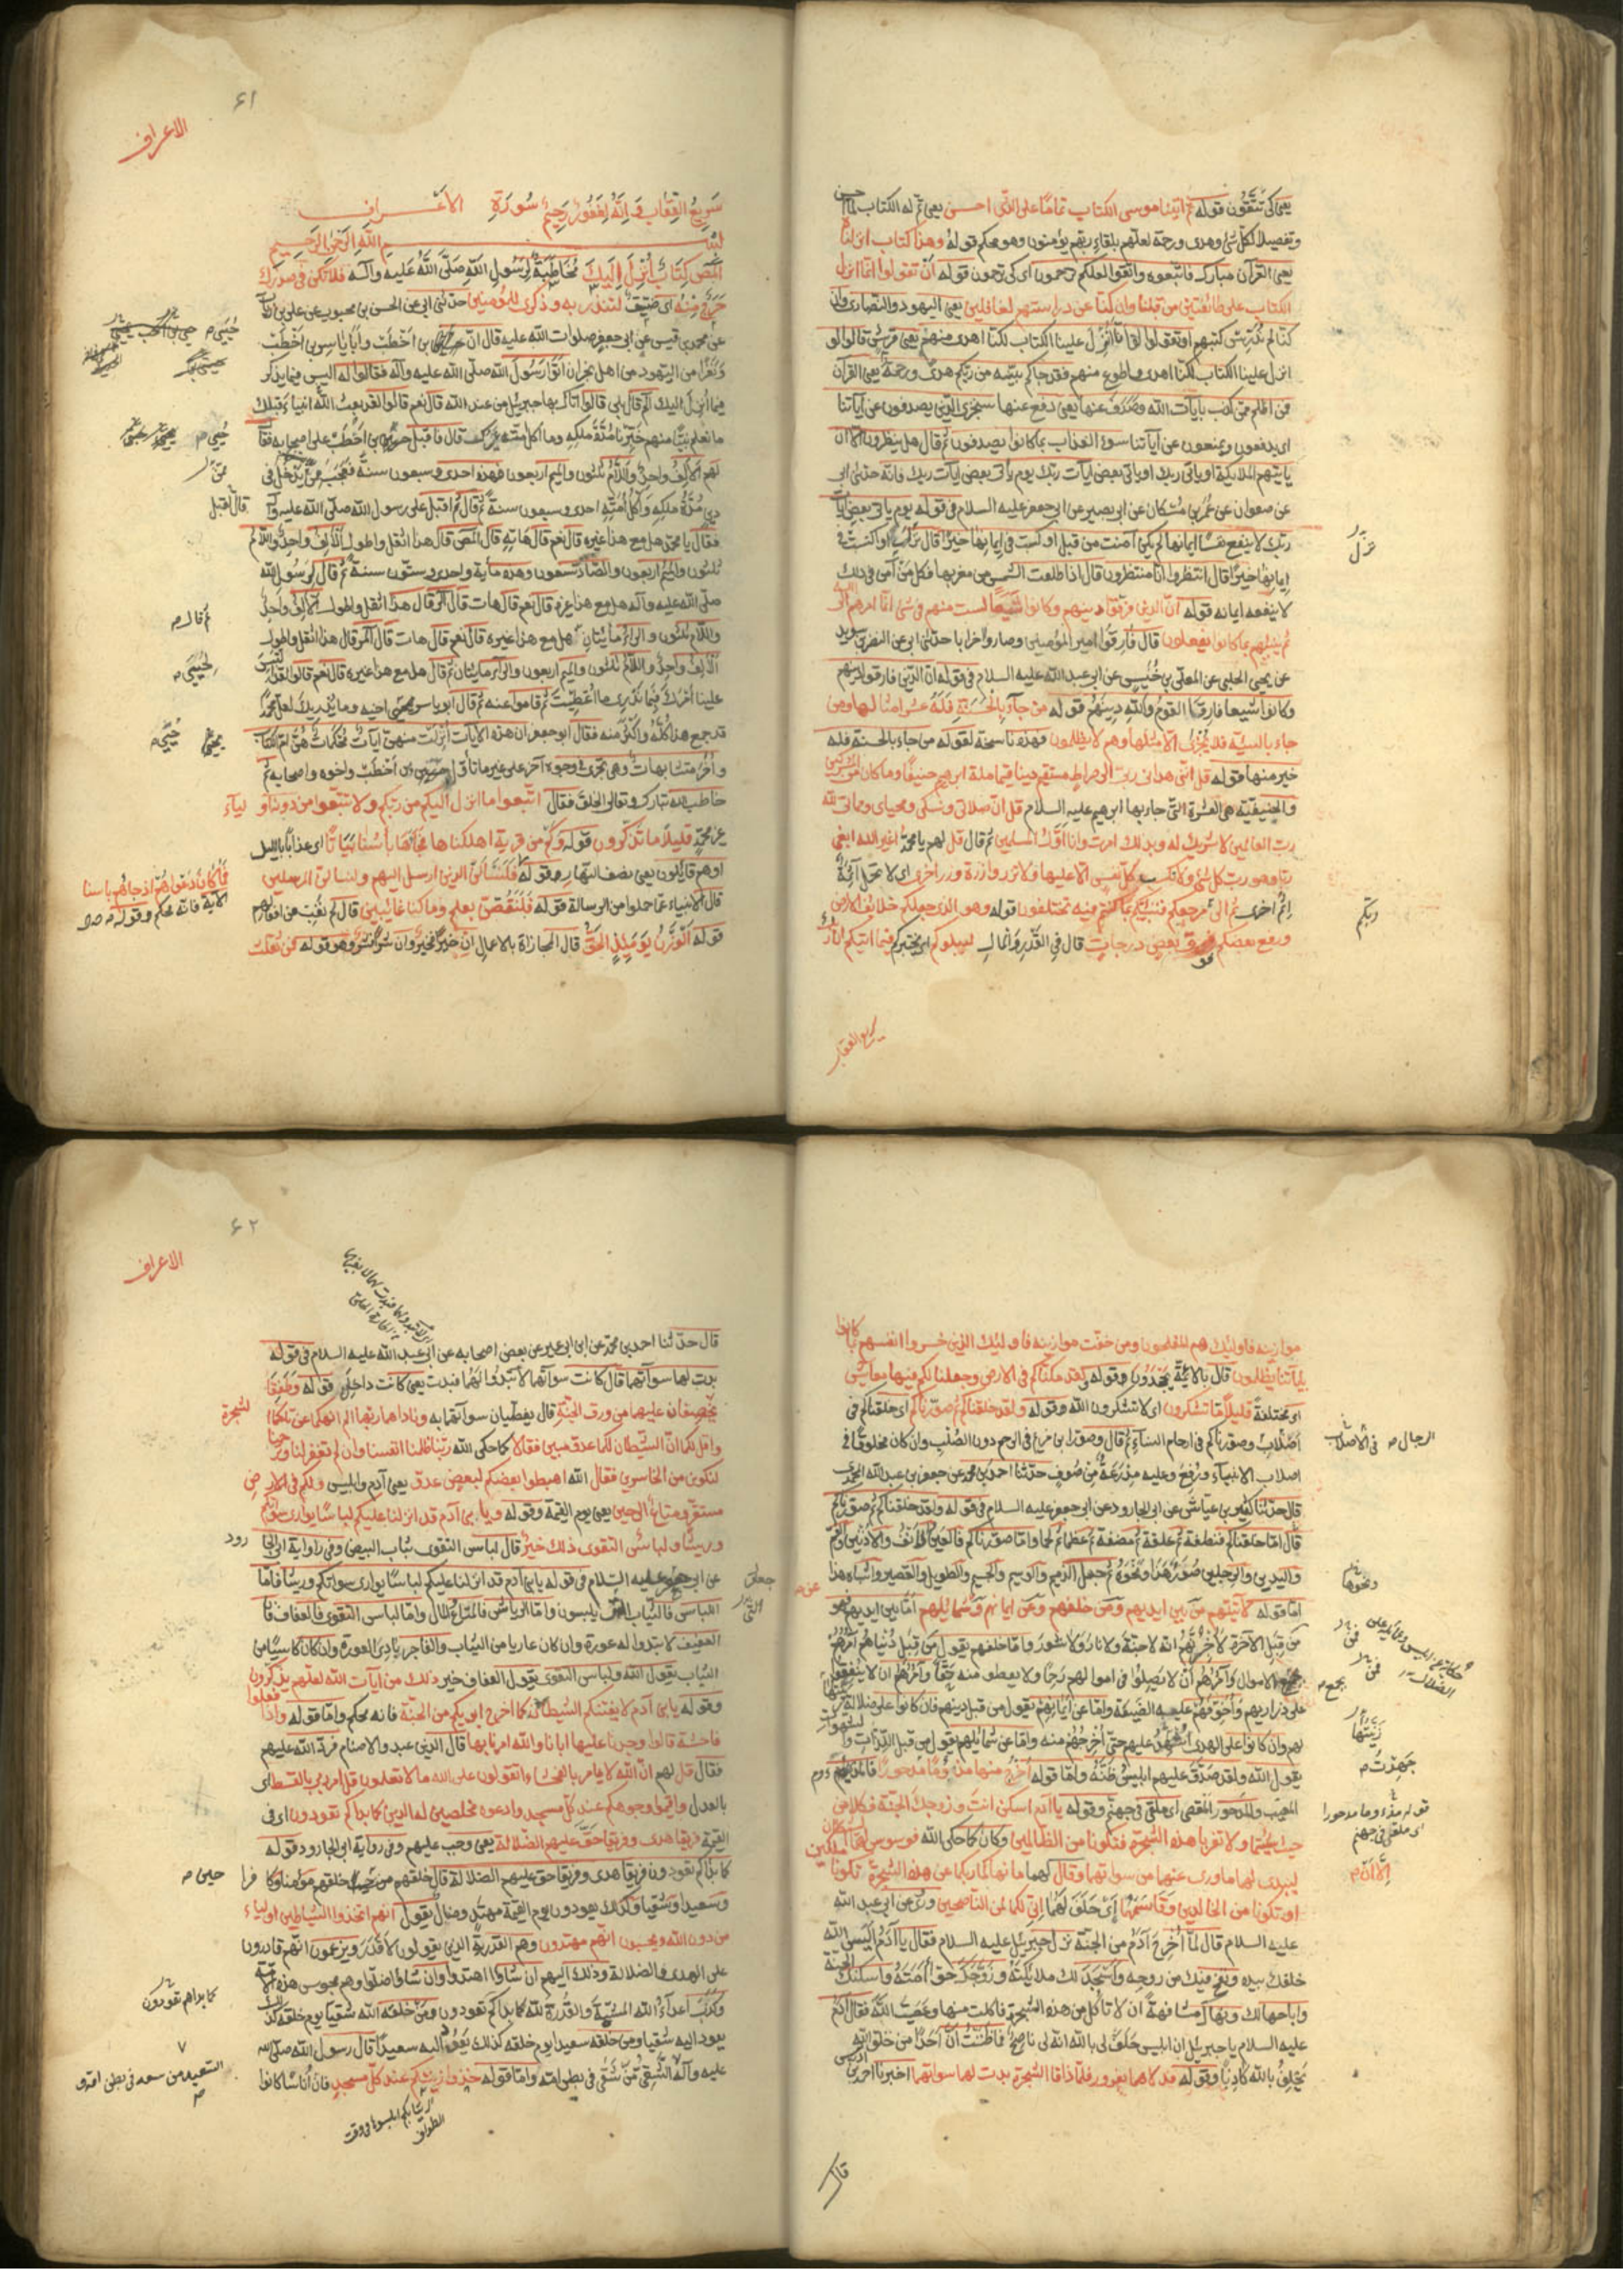 يعنى كى تتّقون قوله ثمّ اتينا موسى الكتاب تماما على الذى احسن يعنى تمّ له الكتاب لما احسن
وتفصيلا لكلّ شئ وهدى ورحمة لعلّهم بلقاء ربّهم يؤمنون وهو محكم قوله وهذا كتاب انزلناه
يعنى القرآن مبارك فاتّبعوه واتّقوا لعلكم ترحمون اى كى ترحمون قوله ان تقولوا انّما انزل
الكتاب على طائفتين من قبلنا وان كنّا عن دراستهم لغافلين يعنى اليهود والنصارى وان
كنّا لم ندرس كتبهم او تقولوا لو انّا اُنزل علينا الكتاب لكنّا اهدى منهم يعنى قريش قالوا لو
انزل علينا الكتاب لكنّا اهدى واطوع منهم فقد جاكم بيّنه من ربّكم هدى ورحمة يعنى القرآن
فمن اظلم ممّن كذب بايات الله وصدف عنها يعنى دفع عنها سنجزى الّذين يصدفون عن آياتنا
اى يدفعون ويمنعون عن آياتنا سوء العذاب بما كانوا يصدفون ثمّ قال هل ينظرون الّا ان
ياتيهم الملايكة او ياتى ربك او ياتى بعض ايات ربّك يوم ياتى بعض ايات ربك فانه حدثنى ابى
عن صفوان عن ابن مسكان عن ابى بصير عن ابى جعفر عليه السلام فى قوله يوم ياتى بعض ايات
ربّك لا ينفع نفسا ايمانها لم يكن آمنت من قبل او كسبت فى ايمانها خيرا قال نزلت او اكتسبت فى
ايمانها خيرا قال انتظروا انّا منتظرون قال اذا طلعت الشمس من مغربها فكل من آمن فى ذلك
لا ينفعه ايمانه قوله انّ الذين فرّقوا دينهم وكانوا شيعا لست منهم فى شئ انّما امرهم الى الله
ثم ينبّئهم بما كانوا يفعلون قال فارقوا امير المؤمنين وصاروا احزابا حدثنى ابى عن النضر بن سويد
عن يحيى الحلبى عن المعلّى بن خُنَيس عن ابى عبد الله عليه السلام فى قوله ان الذين فارقوا دينهم
وكانوا شيعا فارق القوم والله دينهم قوله من جآء بالحسنة فله عشر امثالها ومن
جاء بالسيئة فلا يُجزى الّا مثلها وهم لا يظلمون فهذه ناسخة لقوله من جاء بالحسنة فله
خير منها قوله قل انّنى هدانى ربى الى صراط مستقيم دينا قيما ملة ابرهيم حنيفا وما كان من المشركين
والحنيفيّة هى العشرة التى جاء بها ابرهيم عليه السلام قل انّ صلاتى ونسكى ومحياى ومماتى لله
رب العالمين لا شريك له وبذلك امرت وانا اوّل المسلمين ثم قال قل لهم يا محمّد اغير الله ابغى
ربّا وهو رب كل شئ ولا تكسب كلّ نفس الّا عليها ولا تزر وازرة وزر اخرى اى لا تحمل آثمة
اِثم اخرى ثم الى مرجعكم فننبّئكم بما كنتم فيه تختلفون قوله وهو الذى جعلكم خلايف الارض
ورفع بعضكم فوق بعض درجات قال فى القدر والمال ليبلوكم اى يختبركم فيما اتيكم انّ ربك
نزل
ربّكم
سريع العقاب
٦١
الاعراف
سريع العقاب وَ اِنّه لغفور رحيم سورة الاعراف
بسم الله الرحمن الرحيم
المص كتاب اُنزل اليك مخاطبة لرسول الله صلّى الله عليه وآله فلا تكن فى صدرك
حرج منه اى ضيق لتنذر به وذكرى للمؤمنين حدثنى ابى عن الحسن بن محبوب عن على بن رئاب
عن محمد بن قيس عن ابى جعفر صلوات الله عليه قال انّ بن اخطب وابا ياسر بن اخطب
ونفرا من اليهود من اهل نجران اتوا رسول الله صلّى الله عليه وآله فقالوا له اليس فيما تذكر
فيما اُنزل اليك الم قال بلى قالوا اتاك بها جبريل من عند الله قال نعم قالوا لقد بعث الله انبياء قبلك
ما نعلم نبيّا منهم خبّرنا مدّة ملكه وما اكل امّته غيرك قال فاقبل بن اخطب على اصحابه فقال
لهم الالف واحد واللام ثلثون والميم اربعون فهذه احدى وسبعون سنة فعجب ممّن يدخل فى
دين مدّة ملكه واكل امّته احدى وسبعون سنة ثم قال ثم اقبل على رسول الله صلّى الله عليه وآله
فقال يا محمّد هل مع هذا غيره قال نعم قال هاته قال المص قال هذا اثقل واطول الالف واحد واللام
ثلثون والميم اربعون والصاد تسعون وهذه ماية واحدى وستّون سنة ثم قال لرسول الله
صلّى الله عليه وآله هل مع هذا غيره قال نعم قال هات قال الر قال هذا اثقل واطول الالف واحد
واللام ثلثون والراء مايتان هل مع هذا غيره قال نعم قال هات قال المر قال هذا اثقل واطول
الالف واحد واللام ثلثون والميم اربعون والراء مايتان ثم قال هل مع هذا غيره قال نعم قالوا لقد التبس
علينا امرك فما ندرى ما اُعطيت ثم قاموا عنه ثم قال ابو ياسر اخيه وما يدريك لعل محمّدا
قد جمع هذا كلّه واكثر منه فقال ابو جعفر ان هذه الايات اُنزلت منهنّ آيات محكمات هنّ امّ الكتاب
واُخر متشابهات وهى تجرى فى وجوه آخر على غير ما تاوّل بن اخطب واخوه واصحابه ثم
خاطب الله تبارك وتعالى الخلق فقال اتّبعوا ما انزل اليكم من ربّكم ولا تتّبعوا من دونه اولياء
غير محمّد قليلا ما تذكّرون قوله وكم من قرية اهلكناها فجائها بأسنا بياتا اى عذابا بالليل
او هم قايلون يعنى نصف النهار وقوله فلنسئلنّ الذين ارسل اليهم ولنسئلنّ المرسلين
قال الانبياء عمّا حملوا من الرسالة قوله فلنقصّنّ بعلم وما كنا غائبين قال لم نغب عن افعالهم
قوله الوزن يومئذ الحقّ قال المجازاة بالاعمال ان خيرا فخير وان شرا فشر وهو قوله فمن ثقلت
حُيَى
حُيى
ممن
قال اقبل
ثم قال
لحُيَى
حُيَى
فما كان دعواهم اذ جاءهم باسنا
الآية فانّه محكم وقوله
موازينه فاوليك هم المفلحون ومن خفّت موازينه فاوليك الذين خسروا انفسهم بما كانوا
باياتنا يظلمون قال بالائمّة يجحدون وقوله ولقد مكنّاكم فى الارض وجعلنا لكم فيها معايش
اى مختلفة قليلا ما تشكرون اى لا تشكرون الله وقوله ولقد خلقناكم ثم صوّرناكم اى خلقناكم فى
اصلاب وصوّرناكم فى ارحام النساء ثم قال وصوّر ابن مريم فى الرحم دون الصّلب وان كان مخلوقا فى
اصلاب الانبياء ورُفع وعليه مدرعة من صوف حدّثنا احمد بن محمد عن جعفر بن عبد الله المحمّدى
قال حدّثنا كثير بن عيّاش عن ابى الجارود عن ابى جعفر عليه السلام فى قوله ولقد خلقناكم ثم صوّرناكم
قال امّا خلقناكم فنطفة ثم علقة ثم مضغة ثم عظما ثم لحما وامّا صوّرناكم فالعين والانف والاذنين والفم
واليدين والرجلين صوّر هذا ونحوه ثم جعل الذميم والوسيم والجسيم والطويل والقصير واشباه هذا
امّا قوله لآتينّهم من بين ايديهم ومن خلفهم وعن ايمانهم وشمائلهم امّا بين ايديهم فهو
من قبل الآخرة لاخبرنّهم انه لا جنّة ولا نار ولا نشور وامّا خلفهم يقول من قبل دنياهم آمرهم
بجمع الاموال وآمرهم ان لا يصلوا فى اموالهم رحما ولا يعطوا منه حقّا وآمرهم ان لا ينفقوا
على ذراريهم واخوّفهم عليهم الضيعة وامّا عن ايمانهم يقول من قبل دينهم فان كانوا على ضلالة زيّنتها
لهم وان كانوا على الهدى عليهم حتّى اخرجهم منه وامّا عن شمائلهم يقول من قبل اللذّات والشهوات
يقول الله ولقد صدّق عليهم ابليس ظنّه وامّا قوله اخرج منها مذؤما مدحورا فالمذؤم
المعيب والمدحور المقصى اى ملقى فى جهنم وقوله يا آدم اسكن انت وزوجك الجنّة فكلا من
حيث شئتما ولا تقربا هذه الشجرة فتكونا من الظالمين وكان كما حكى الله فوسوس لهما الشيطان
ليبدى لهما ماورى عنهما من سواتهما وقال لهما ما نهاكما ربّكما عن هذه الشجرة تكونا ملكين
او تكونا من الخالدين وقاسمهما اى حلف لهما انّى لكما لمن الناصحين وروى عن ابى عبد الله
عليه السلام قال لمّا اُخرج آدم من الجنّة نزل جبريل عليه السلام فقال يا آدم اليس الله
خلقك بيده ونفخ فيك من روحه واسجد لك ملايكته وزوّجك حوّا اَمته واسكنك الجنّة
واباحها لك ونهاك مشافهة ان لا تاكل من هذه الشجرة فاكلت منها وعصيت الله فقال آدم
عليه السلام يا جبريل ان ابليس حلف لى بالله انه لى ناصح فما ظننت ان احدا من خلق الله
يحلف بالله كاذبا وقوله فدلاهما بغرور فلمّا ذاقا الشجرة بدت لهما سواتهما اخبرنا احمد بن ادريس
الرجال فى الاصلاب
ونحوهما
بجمع
زيّنتها
جهدت
قوله مذءوما مدحورا
اى ملقى فى جهنم
اِلّا اَن
قال
٦٢
الاعراف
قال حدّثنا احمد بن محمّد عن ابن ابى عمير عن بعض اصحابه عن ابى عبد الله عليه السلام فى قوله
بدت لهما سوآتهما قال كانت سوآتهما لا تبدو لهما فبدت يعنى كانت داخلة قوله وطفقا
يخصفان عليهما من ورق الجنّة قال يغطّيان سوآتهما به وناداهما ربّهما الم انهكما عن تلكما الشجرة
واقل لكما انّ الشيطان لكما عدوّ مبين فقالا كما حكى الله ربّنا ظلمنا انفسنا وان لم تغفر لنا وترحمنا
لنكونن من الخاسرين فقال الله اهبطوا بعضكم لبعض عدوّ يعنى آدم وابليس ولكم فى الارض
مستقرّ ومتاع الى حين يعنى يوم القيمة وقوله ويا بنى آدم قد انزلنا عليكم لباسا يوارى سوآتكم
وريشا ولباس التقوى ذلك خير قال لباس التقوى ثياب البيض وفى رواية ابى الجارود
عن ابى جعفر عليه السلام فى قوله يا بنى آدم قد انزلنا عليكم لباسا يوارى سوآتكم وريشا فامّا
اللباس فالثياب يلبسون وامّا الرياش فالمتاع والمال وامّا لباس التقوى فالعفاف فان
العفيف لا تبدو له عورة وان كان عاريا من الثياب والفاجر بادى العورة وان كان كاسيا من
الثياب يقول الله ولباس التقوى يقول العفاف خير ذلك من ايات الله لعلهم يذكّرون
وقوله يا بنى آدم لا يفتننّكم الشيطان كما اخرج ابويكم من الجنّة فانه محكم وامّا قوله واذا فعلوا
فاحشة قالوا وجدنا عليها اباءنا والله امرنا بها قال الذين عبدوا الاصنام فردّ الله عليهم
فقال قل لهم انّ الله لا يامر بالفحشاء اتقولون على الله ما لا تعلمون قل امر ربى بالقسط اى
بالعدل واقيموا وجوهكم عند كلّ مسجد وادعوه مخلصين له الدين كما بداكم تعودون اى فى
القيمة فريقا هدى وفريقا حقّ عليهم الضلالة يعنى وجب عليهم وفى رواية ابى الجارود قوله
كما بداكم تعودون فريقا هدى وفريقا حق عليهم الضلالة قال خلقهم من حيث خلقهم مؤمنا وكافرا
وسعيدا وشقيا وكذلك يعودون يوم القيمة مهتد وضالّ يقول انهم اتخذوا الشياطين اولياء
من دون الله ويحسبون انّهم مهتدون وهم القدريّة الذين يقولون لا قدر ويزعمون انّهم قادرون
على الهدى والضلالة وذلك اليهم ان شاؤا اهتدوا وان شاؤا ضلّوا وهم مجوس هذه الامّة
وكذب اعداء الله المشيّة والقدرة لله كما بداكم تعودون ومن خلقه الله شقيا يوم خلقه كذلك
يعود اليه شقيا ومن خلقه سعيدا يوم خلقه كذلك يعود اليه سعيدا قال رسول الله صلّى الله
عليه وآله الشقى من شقى فى بطن امّه وامّا قوله خذوا زينتكم عند كلّ مسجد فان اناسا كانوا
حين
كما بداهم تعودون
السعيد من سعد فى بطن امّه